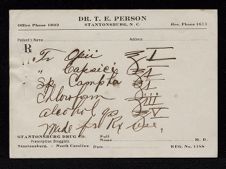 DR. T. E. PERSON
STANTONSBURG, N. C.
Office Phone 1093 Res. Phone 1613
Patient's Name Address
R
Tr Opii ℥ I
" Capsici ℥ I
Sp. Camphor ℥ I
Chloroform ℥ III
alcohol qs ℥ V
Made for Rx
STANTONSBURG DRUG CO.
Prescription Druggists
Stantonsburg, - North Carolina
Name
Date
M. D.
REG. No. 1188